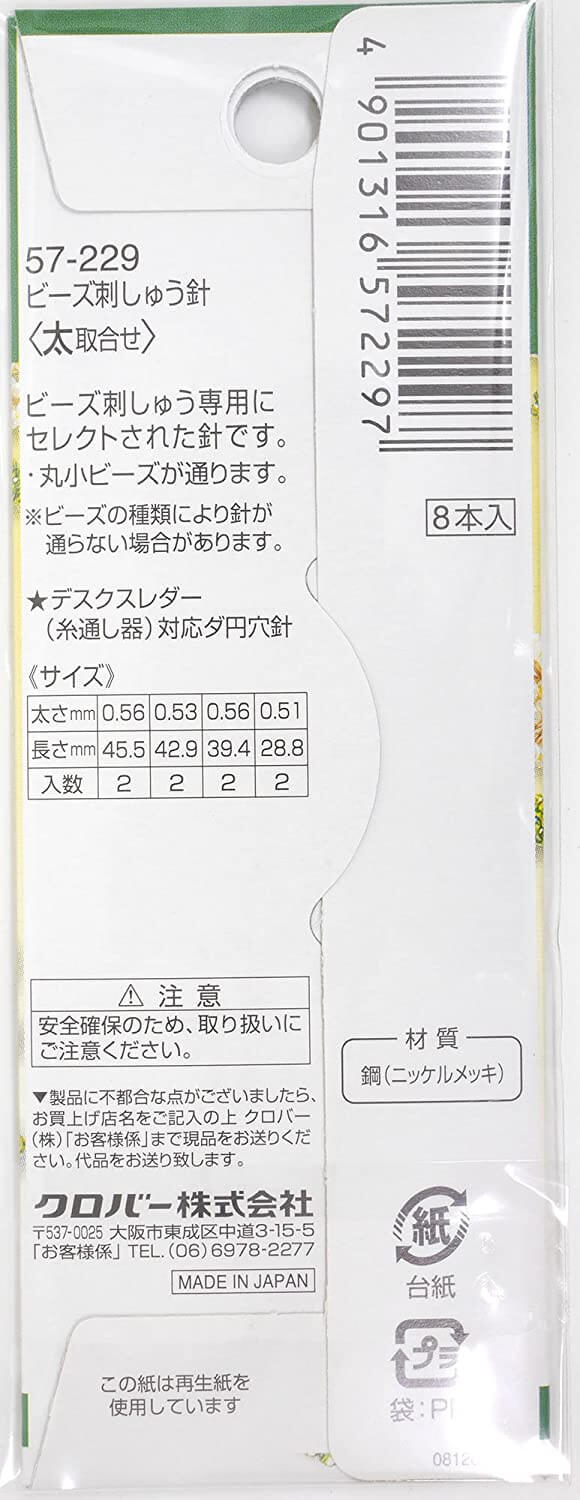 57-229
ビーズ刺しゅう針
〈太取合せ〉
ビーズ刺しゅう専用に
セレクトされた針です。
・丸小ビーズが通ります。
※ビーズの種類により針が
通らない場合があります。
★デスクスレダー
(糸通し器)対応ダ円穴針
《サイズ》
太さmm 0.56 0.53 0.56 0.51
長さmm 45.5 42.9 39.4 28.8
入数 2 2 2 2
⚠ 注意
安全確保のため、取り扱いに
ご注意ください。
▼製品に不都合な点がございましたら、
お買上げ店名をご記入の上 クロバー
(株)「お客様係」まで現品をお送りくだ
さい。代品をお送り致します。
クロバー株式会社
〒537-0025 大阪市東成区中道3-15-5
「お客様係」TEL.(06)6978-2277
MADE IN JAPAN
この紙は再生紙を
使用しています
4 901316 572297
8本入
材質
鋼(ニッケルメッキ)
紙
台紙
プラ
袋:P
0812